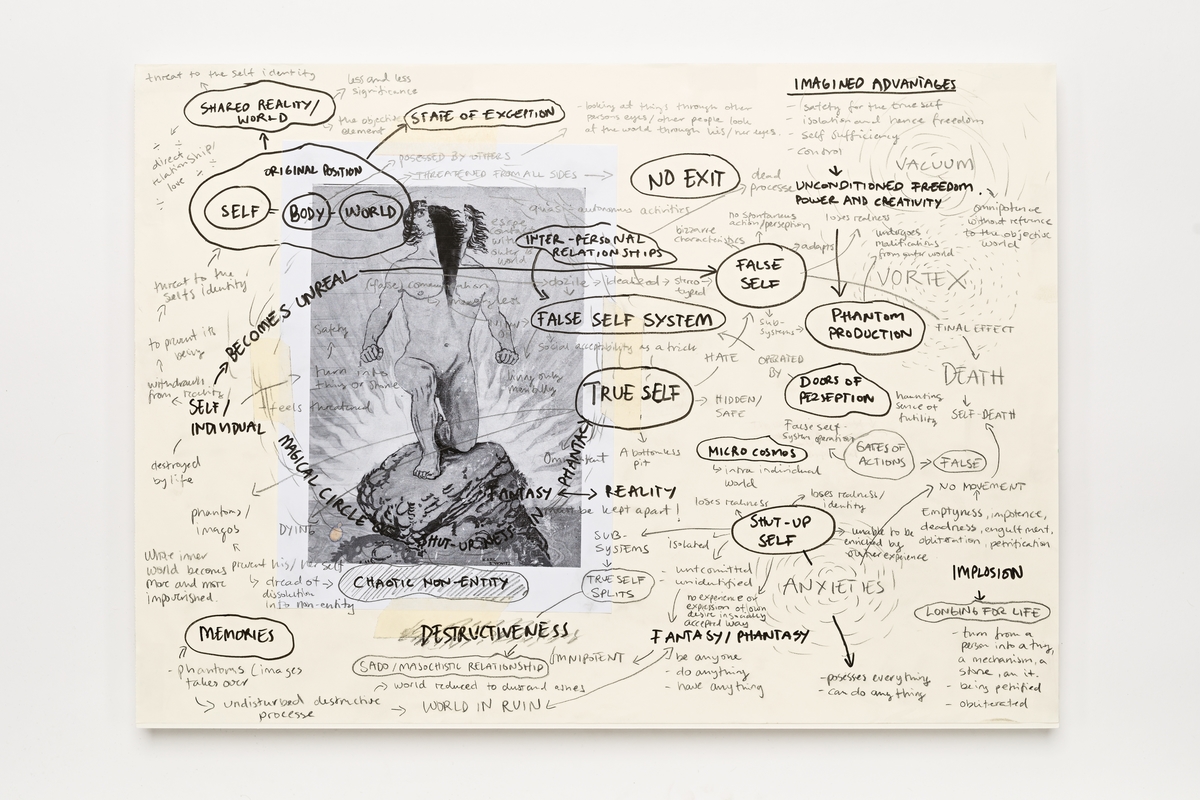 threat to the self identity
less and less
significance
SHARED REALITY/
WORLD
the objective
element
STATE OF EXCEPTION
- looking at things through other
persons eyes/other people look
at the world through his/her eyes.
IMAGINED ADVANTAGES
- safety for the true self
- isolation and hence freedom
- self sufficiency
- control
VACUUM
direct
relationship/
love
ORIGINAL POSITION
SELF = BODY - WORLD
POSESSED BY OTHERS
THREATENED FROM ALL SIDES
NO EXIT
dead
processe
UNCONDITIONED FREEDOM
POWER AND CREATIVITY
omnipotence
without refrence
to the objective
world
quasi-autonomous activities
no spontanous
action/perception
bizarre
characteristics
loses realness
undergoes
modifications
from outer world
adapts
INTER-PERSONAL
RELATIONSHIPS
FALSE
SELF
VORTEX
threat to the
selfs identity
BECOMES UNREAL
FALSE SELF SYSTEM
sub-
systems
PHANTOM
PRODUCTION
FINAL EFFECT
to prevent its
being
Safety
turn into
Social acceptability as a trick
HATE
OPERATED
BY
DEATH
withdrawls
from reality
SELF/
INDIVIDUAL
feels threatened
TRUE SELF
HIDDEN/
SAFE
DOORS OF
PERSEPTION
haunting
sence of
futility
SELF-DEATH
MAGICAL CIRCLE
PHANTASY
False self-
system operation
destroyed
by life
A bottomless
pit
MICRO COSMOS
intra individual
world
GATES OF
ACTIONS
FALSE
FANTASY
REALITY
must be kept apart!
NO MOVEMENT
phantoms/
imagos
loses realness
loses realness/
identity
SHUT-UP
SELF
Emptyness, impotence,
deadness, engulfment,
obliteration, petrification
SHUT-UP-NESS
SUB-
SYSTEMS
isolated
unable to be
enriched by
outer experience
While inner
world becomes
more and more
impoverished.
prevent his/her self
dread of
dissolution
into non-entity
CHAOTIC NON-ENTITY
TRUE SELF
SPLITS
uncomitted
unidentified
no experience or
expression of own
desire in socially
accepted way
ANXIETIES
IMPLOSION
LONGING FOR LIFE
MEMORIES
DESTRUCTIVENESS
FANTASY/PHANTASY
- phantoms/images
takes over
SADO/MASOCHISTIC RELATIONSHIP
OMNIPOTENT
- be anyone
- do anything
- have anything
- posesses everything
- can do any thing
- turn from a
person into a thing,
a mechanism, a
stone, an it.
- being petrified
- obliterated
world reduced to dust and ashes
undisturbed destructive
processe
WORLD IN RUIN